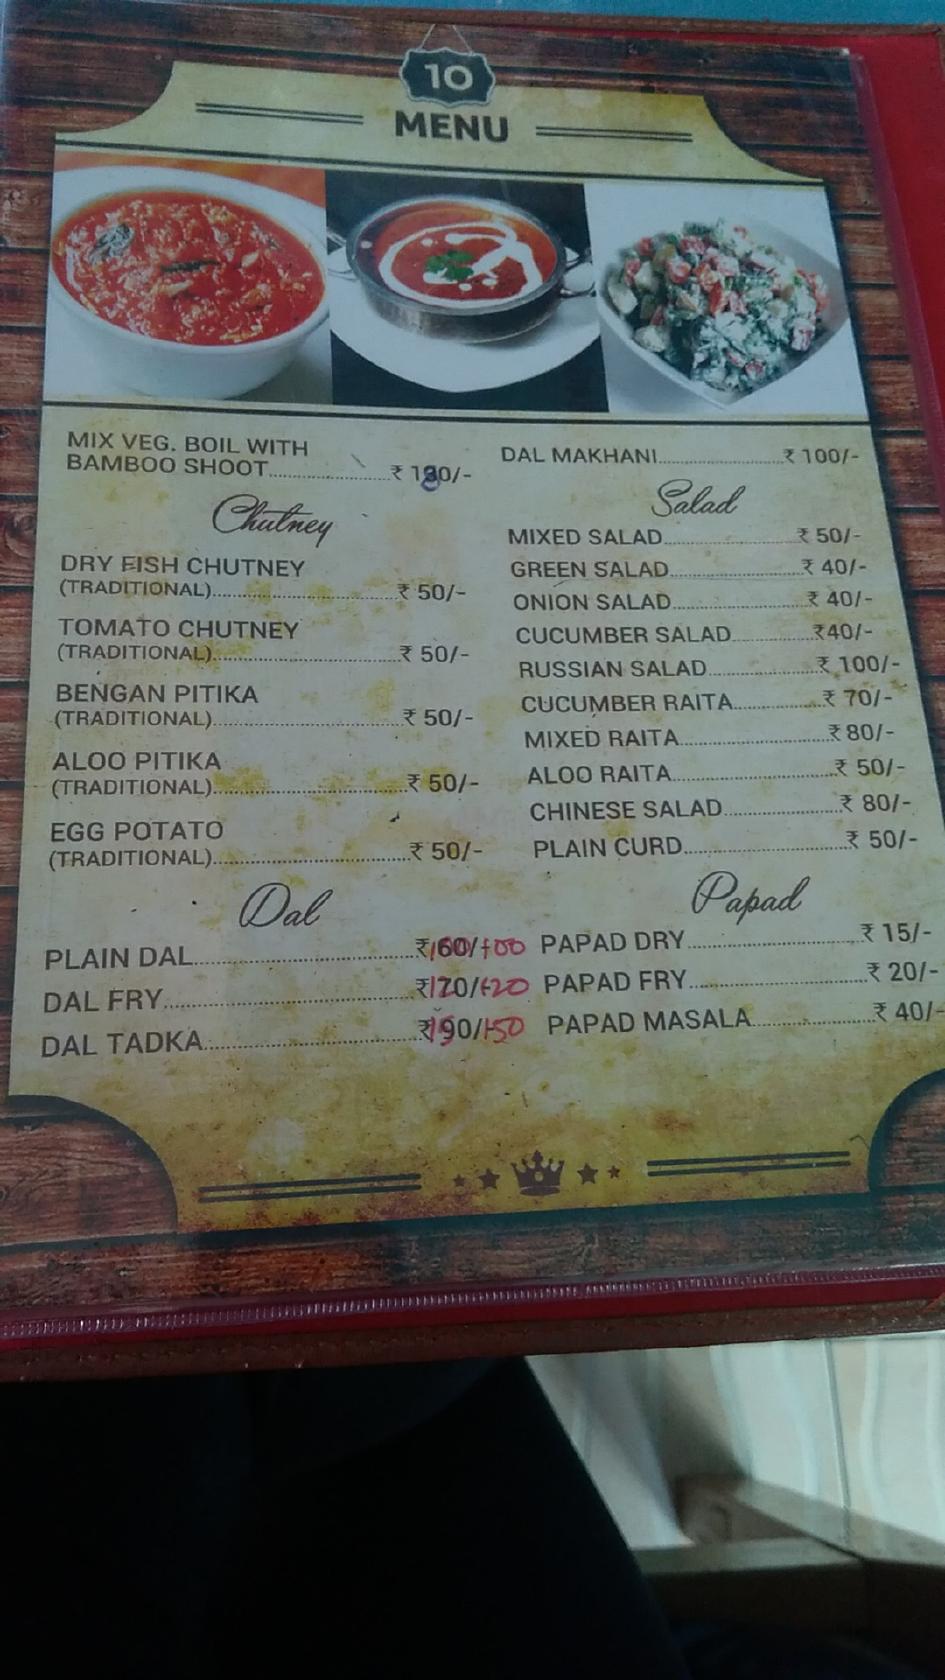 10
MENU
MIX VEG. BOIL WITH
BAMBOO SHOOT
DAL MAKHANI ₹ 100/-
Chutney
DRY FISH CHUTNEY
(TRADITIONAL) ₹ 50/-
TOMATO CHUTNEY
(TRADITIONAL) ₹ 50/-
BENGAN PITIKA
(TRADITIONAL) ₹ 50/-
ALOO PITIKA
(TRADITIONAL) ₹ 50/-
EGG POTATO
(TRADITIONAL) ₹ 50/-
Dal
PLAIN DAL ₹ 60/- 100
DAL FRY ₹ 70/- 120
DAL TADKA ₹ 90/- 150
Salad
MIXED SALAD ₹ 50/-
GREEN SALAD ₹ 40/-
ONION SALAD ₹ 40/-
CUCUMBER SALAD ₹40/-
RUSSIAN SALAD ₹ 100/-
CUCUMBER RAITA ₹ 70/-
MIXED RAITA ₹ 80/-
ALOO RAITA ₹ 50/-
CHINESE SALAD ₹ 80/-
PLAIN CURD ₹ 50/-
Papad
PAPAD DRY ₹ 15/-
PAPAD FRY ₹ 20/-
PAPAD MASALA ₹ 40/-